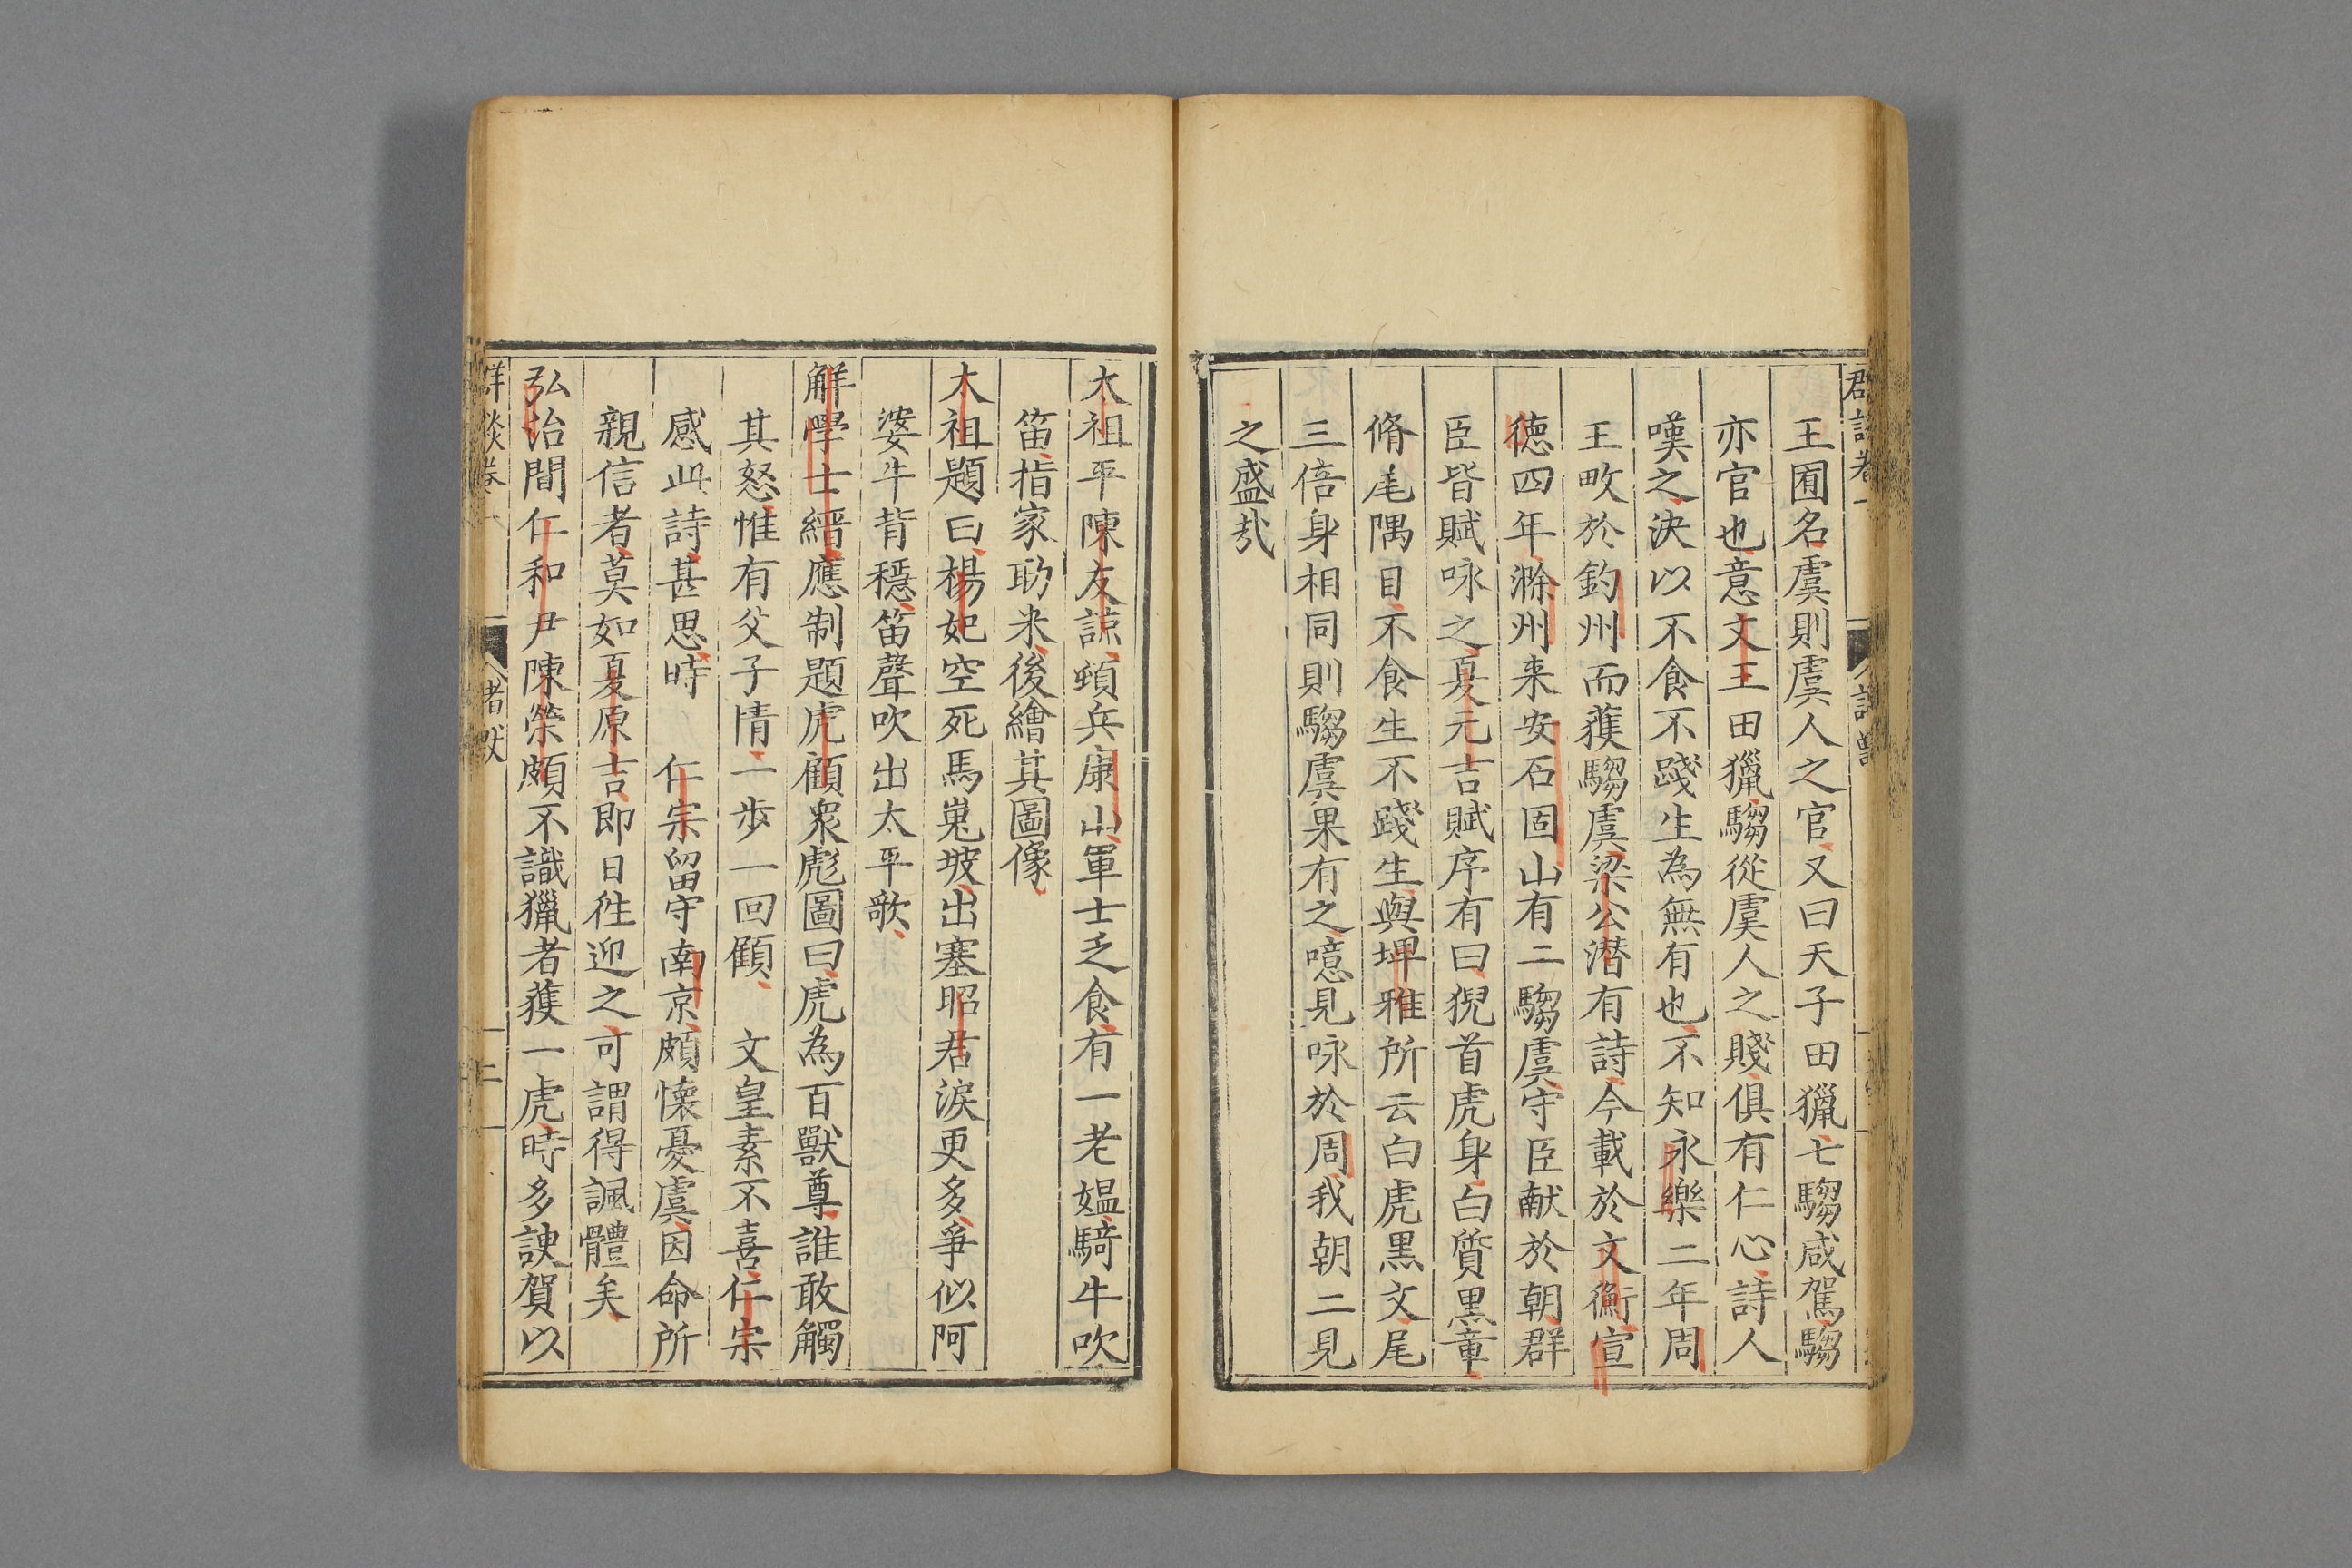 王囿名虞則虞人之官又曰天子田獵七騶咸駕騶
亦官也意文王田獵騶從虞人之賤俱有仁心詩人
嘆之決以不食不踐生為無有也不知永樂二年周
王畋於鈞州而獲騶虞梁公潜有詩今載於文衡宣
德四年滁州来安石固山有二騶虞守臣献於朝群
臣皆賦咏之夏元吉賦序有曰猊首虎身白質黒章
脩尾隅目不食生不踐生與埤雅所云白虎黒文尾
三倍身相同則騶虞果有之噫見咏於周我朝二見
之盛㢤
太祖平陳友諒頓兵康山軍士乏食有一老媪騎牛吹
笛指家助米後繪其圖像
太祖題曰楊妃空死馬嵬坡出塞昭君淚更多爭似阿
婆牛背穩笛聲吹出太平歌
解學士縉應制題虎顧衆彪圖曰虎為百獸尊誰敢觸
其怒惟有父子情一歩一回顧 文皇素不喜仁宗
感此詩甚思時 仁宗留守南京頗懐憂虞因命所
親信者莫如夏原吉即日徃迎之可謂得諷體矣
弘治間仁和尹陳榮頗不識獵者獲一虎時多諛賀以
群談卷一
二